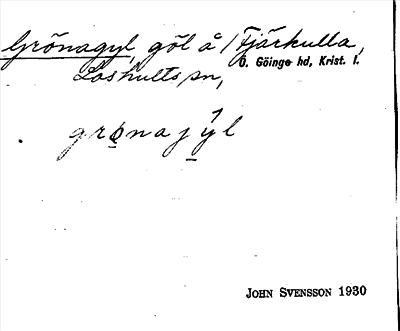 Grönagyl, göl å Fjärkulla,
Loshults sn, Ö. Göinge hd, Krist. l.
grönajýl
JOHN SVENSSON 1930